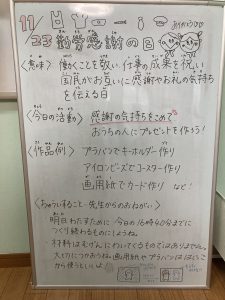 11/23 勤労感謝の日
〈意味〉 働くことを敬い、仕事の成果を祝い
国民がお互いに感謝やお礼の気持ち
を伝える日
〈今日の活動〉 感謝の気持ちをこめて
おうちの人にプレゼントを作ろう!
〈作品例〉 プラバンでキーホルダー作り
アイロンビーズでコースター作り
画用紙でカード作り など!
明日わたすために 今日の16時40分までに
つくり終わるものにしようね。
・材料はむげんにわいてくるものではありません。
大切につかおうね。画用紙やプラバンは
から使うといいよ